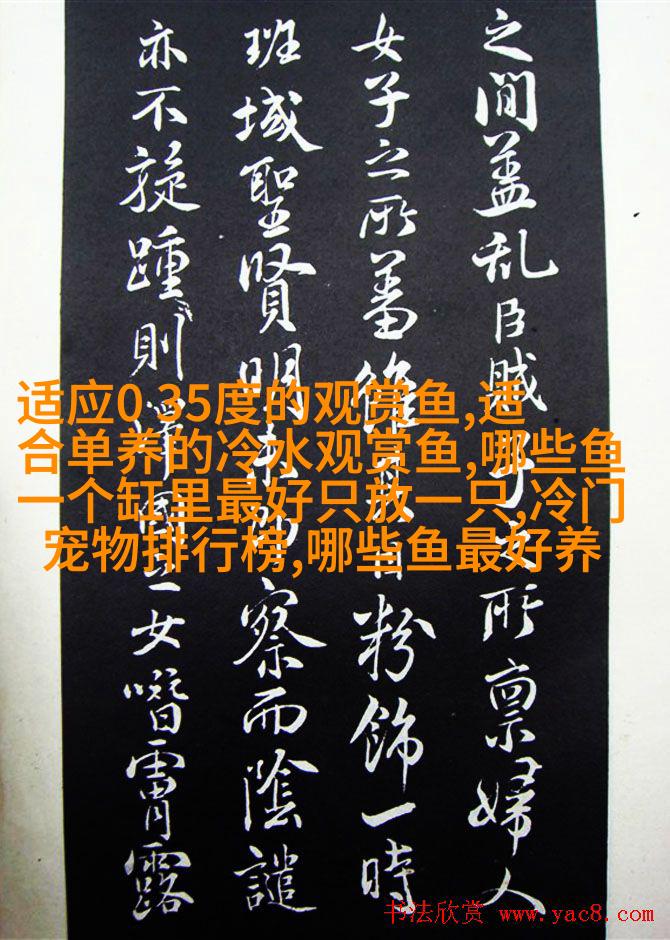 之間盖乱臣賊所禀婦人
女子之所蓄雖目粉飾一時
班域聖賢明察而陰譴
亦不旋踵則一女霄露
适应0 35度的观赏鱼,适
合单养的冷水观赏鱼,哪些鱼
一个缸里最好只放一只,冷门
宠物排行榜,哪些鱼最好养
书法欣赏 www.yac8.com